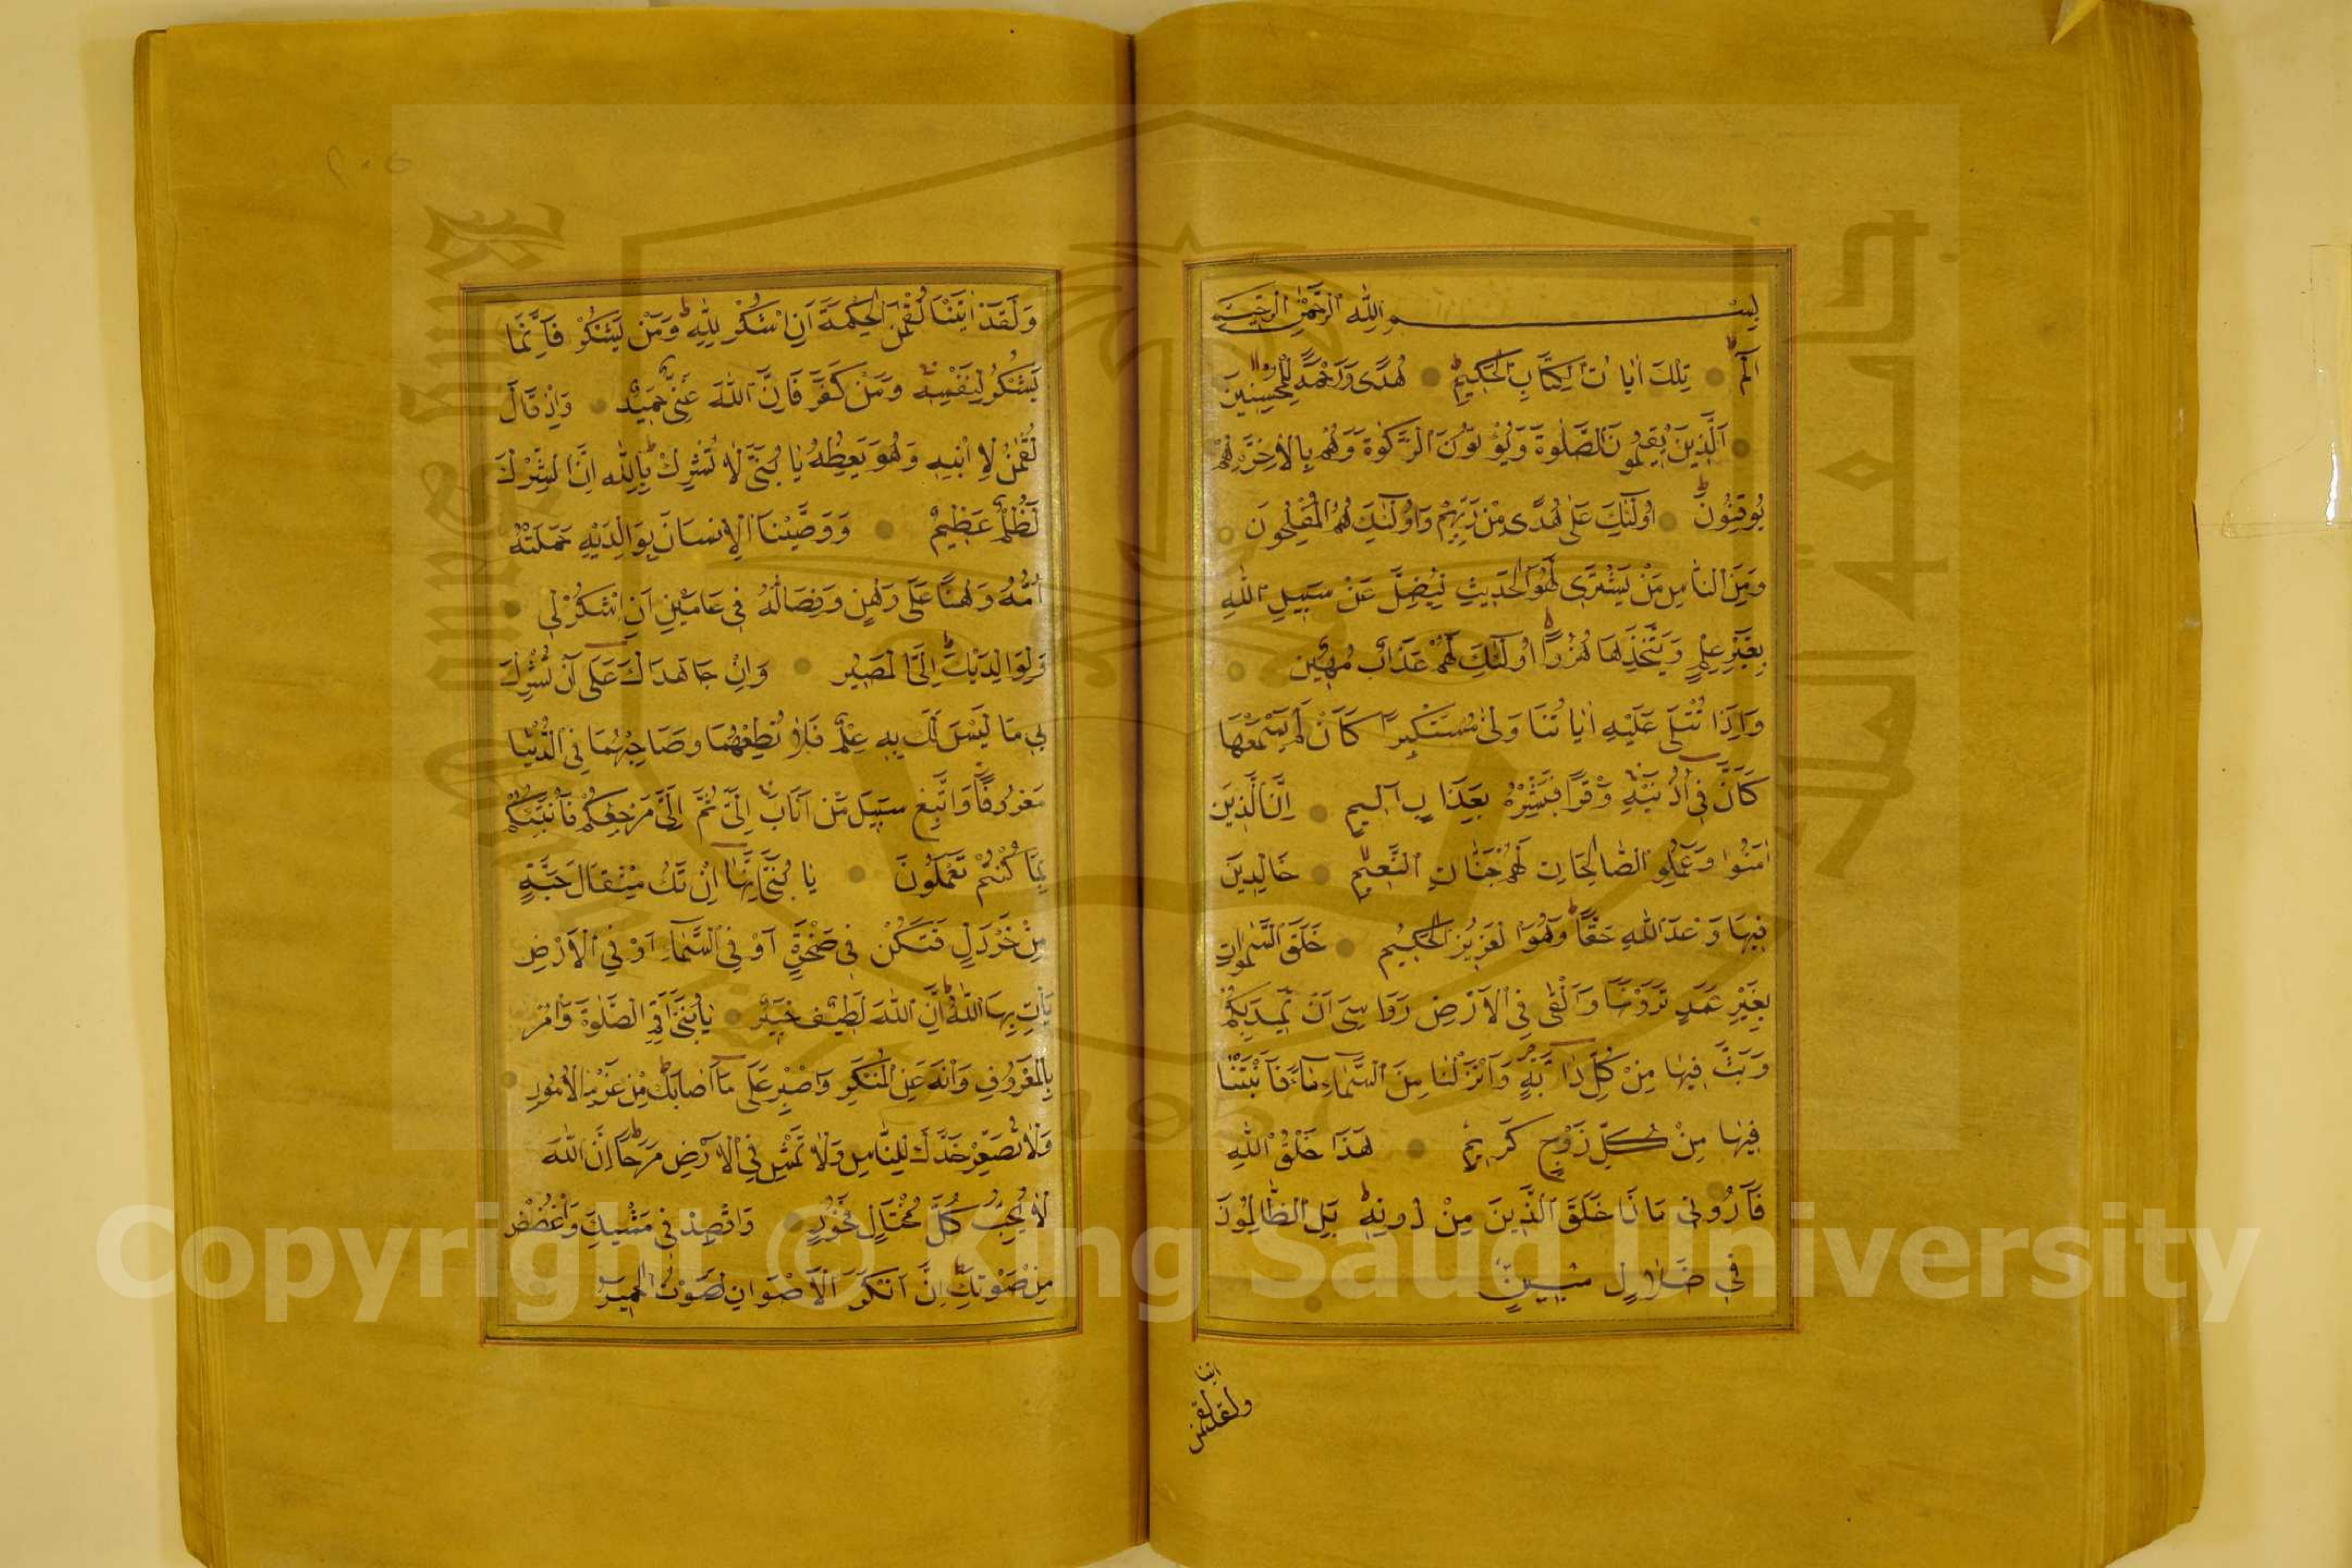 بِسْمِ اللّٰهِ الرَّحْمٰنِ الرَّحِيمِ
الٓمٓ تِلْكَ اٰيَاتُ الْكِتَابِ الْحَكِيمِ هُدًى وَرَحْمَةً لِلْمُحْسِنِينَ
اَلَّذِينَ يُقِيمُونَ الصَّلٰوةَ وَيُؤْتُونَ الزَّكٰوةَ وَهُمْ بِالْاٰخِرَةِ هُمْ
يُوقِنُونَ اُولٰٓئِكَ عَلٰى هُدًى مِنْ رَبِّهِمْ وَاُولٰٓئِكَ هُمُ الْمُفْلِحُونَ
وَمِنَ النَّاسِ مَنْ يَشْتَرِى لَهْوَ الْحَدِيثِ لِيُضِلَّ عَنْ سَبِيلِ اللّٰهِ
بِغَيْرِ عِلْمٍ وَيَتَّخِذَهَا هُزُوًا اُولٰٓئِكَ لَهُمْ عَذَابٌ مُهِينٌ
وَاِذَا تُتْلٰى عَلَيْهِ اٰيَاتُنَا وَلّٰى مُسْتَكْبِرًا كَاَنْ لَمْ يَسْمَعْهَا
كَاَنَّ فِى اُذُنَيْهِ وَقْرًا فَبَشِّرْهُ بِعَذَابٍ اَلِيمٍ اِنَّ الَّذِينَ
اٰمَنُوا وَعَمِلُوا الصَّالِحَاتِ لَهُمْ جَنَّاتُ النَّعِيمِ خَالِدِينَ
فِيهَا وَعْدَ اللّٰهِ حَقًّا وَهُوَ الْعَزِيزُ الْحَكِيمُ خَلَقَ السَّمٰوَاتِ
بِغَيْرِ عَمَدٍ تَرَوْنَهَا وَاَلْقٰى فِى الْاَرْضِ رَوَاسِىَ اَنْ تَمِيدَ بِكُمْ
وَبَثَّ فِيهَا مِنْ كُلِّ دَابَّةٍ وَاَنْزَلْنَا مِنَ السَّمَاءِ مَاءً فَاَنْبَتْنَا
فِيهَا مِنْ كُلِّ زَوْجٍ كَرِيمٍ هٰذَا خَلْقُ اللّٰهِ
فَاَرُونِى مَاذَا خَلَقَ الَّذِينَ مِنْ دُونِهِ بَلِ الظَّالِمُونَ
فِى ضَلَالٍ مُبِينٍ
ولقد اتينا لقمن
وَلَقَدْ اٰتَيْنَا لُقْمٰنَ الْحِكْمَةَ اَنِ اشْكُرْ لِلّٰهِ وَمَنْ يَشْكُرْ فَاِنَّمَا
يَشْكُرُ لِنَفْسِهِ وَمَنْ كَفَرَ فَاِنَّ اللّٰهَ غَنِىٌّ حَمِيدٌ وَاِذْ قَالَ
لُقْمٰنُ لِابْنِهِ وَهُوَ يَعِظُهُ يَا بُنَىَّ لَا تُشْرِكْ بِاللّٰهِ اِنَّ الشِّرْكَ
لَظُلْمٌ عَظِيمٌ وَوَصَّيْنَا الْاِنْسَانَ بِوَالِدَيْهِ حَمَلَتْهُ
اُمُّهُ وَهْنًا عَلٰى وَهْنٍ وَفِصَالُهُ فِى عَامَيْنِ اَنِ اشْكُرْ لِى
وَلِوَالِدَيْكَ اِلَىَّ الْمَصِيرُ وَاِنْ جَاهَدَاكَ عَلٰى اَنْ تُشْرِكَ
بِى مَا لَيْسَ لَكَ بِهِ عِلْمٌ فَلَا تُطِعْهُمَا وَصَاحِبْهُمَا فِى الدُّنْيَا
مَعْرُوفًا وَاتَّبِعْ سَبِيلَ مَنْ اَنَابَ اِلَىَّ ثُمَّ اِلَىَّ مَرْجِعُكُمْ فَاُنَبِّئُكُمْ
بِمَا كُنْتُمْ تَعْمَلُونَ يَا بُنَىَّ اِنَّهَا اِنْ تَكُ مِثْقَالَ حَبَّةٍ
مِنْ خَرْدَلٍ فَتَكُنْ فِى صَخْرَةٍ اَوْ فِى السَّمٰاءِ اَوْ فِى الْاَرْضِ
يَاْتِ بِهَا اللّٰهُ اِنَّ اللّٰهَ لَطِيفٌ خَبِيرٌ يَا بُنَىَّ اَقِمِ الصَّلٰوةَ وَاْمُرْ
بِالْمَعْرُوفِ وَانْهَ عَنِ الْمُنْكَرِ وَاصْبِرْ عَلٰى مَا اَصَابَكَ مِنْ عَزْمِ الْاُمُورِ
وَلَا تُصَعِّرْ خَدَّكَ لِلنَّاسِ وَلَا تَمْشِ فِى الْاَرْضِ مَرَحًا اِنَّ اللّٰهَ
لَا يُحِبُّ كُلَّ مُخْتَالٍ فَخُورٍ وَاقْصِدْ فِى مَشْيِكَ وَاغْضُضْ
مِنْ صَوْتِكَ اِنَّ اَنْكَرَ الْاَصْوَاتِ لَصَوْتُ الْحَمِيرِ
٢٠٥
Copyright © King Saud University
King Saud University
1957